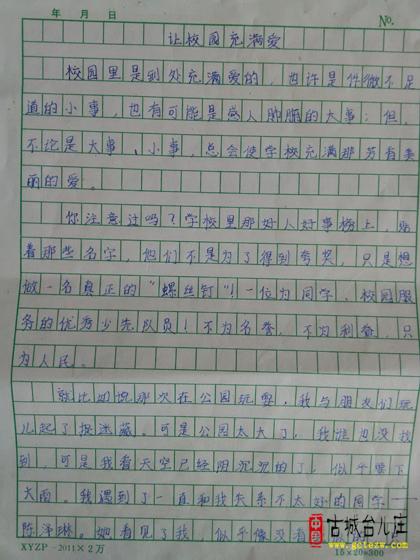 年 月 日 No.
让校园充满爱
校园里是到处充满爱的，也许是件微不足
道的小事，也有可能是感人肺腑的大事；但，
不论是大事、小事，总会使学校充满那芳有美
丽的爱。
你注意过吗？学校里那好人好事榜上，贴
着那些名字，他们不是为了得到夸奖，只是想
做一名真正的“螺丝钉”！一位为同学、校园服
务的优秀少先队员！不为名誉，不为利益，只
为人民。
就比如说那次在公园玩耍，我与朋友们玩
儿起了捉迷藏。可是公园太大了，我谁也没找
到，可是我看天空已经阴沉沉的了，似乎要下
大雨。我遇到了一直和我关系不太好的同学——
陈泽琳。她看见了我，似乎像没有
XYZP－2011×2万
15×20=300
中国 古城台儿庄
www.gctezw.com